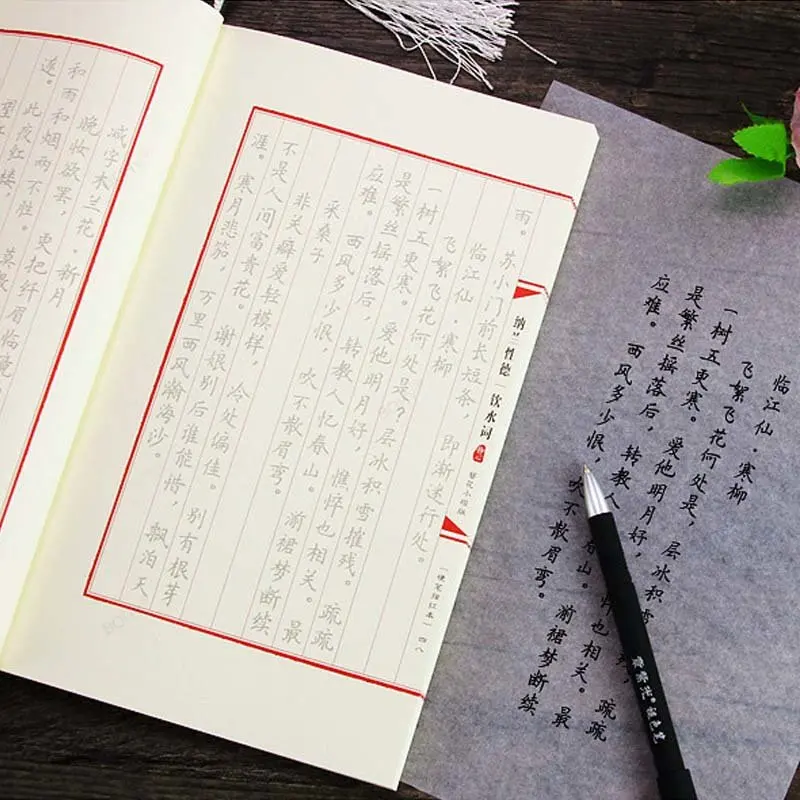 雨。苏小门前长短条,即渐迷行处。
临江仙·寒柳
飞絮飞花何处是?层冰积雪摧残。疏疏
一树五更寒。爱他明月好,憔悴也相关。最
是繁丝摇落后,转教人忆春山。湔裙梦断续
应难。西风多少恨,吹不散眉弯。
采桑子
非关癖爱轻模样,冷处偏佳。别有根芽
不是人间富贵花。谢娘别后谁能惜,飘泊天
涯。寒月悲笳,万里西风瀚海沙。
纳兰性德 饮水词 簪花小楷版
硬笔描红本 四八
减字木兰花·新月
晚妆欲罢,更把纤眉临
和雨和烟两不胜。莫教
此夜红楼,
望江
临江仙·寒柳
飞絮飞花何处是,层冰积雪 疏疏
一树五更寒。爱他明月好, 悴也相关。最
是繁丝摇落后,转教人 春山。湔裙梦断续
应难。西风多少恨,吹不散眉弯。